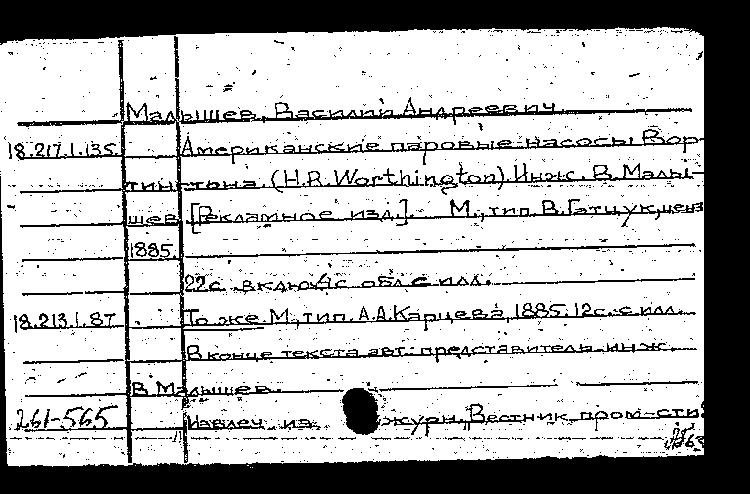 Малышев, Василий Андреевич.
18.217.1.135 Американские паровые насосы Вор-
тингтона. (H.R. Worthington) Инж. В. Малы-
шев. [Рекламное изд.]. М., тип. В. Гатцук, ценз.
1885.
22с. включ. обл. с илл.
18.213.1.87 То же М., тип. А.А. Карцева, 1885. 12с. с илл.
В конце текста авт: представитель инж.
В. Малышев.
261-565 Извлеч. из журн. „Вестник пром-сти"